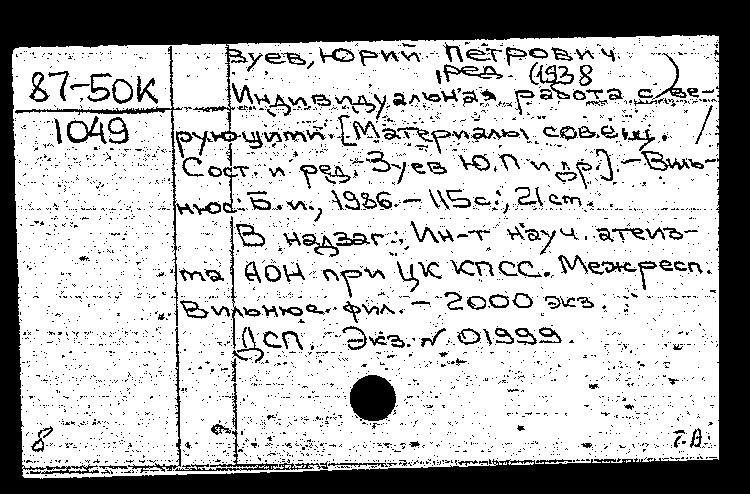 87-50К
1049
Зуев, Юрий Петрович
ред. (1938 )
Индивидуальная работа с ве-
рующими. [Материалы совещ. /
Сост. и ред. Зуев Ю.П и др.]. - Виль-
нюс: Б.и., 1986. - 115с.; 21 см.
В надзаг.: Ин-т науч. атеиз-
ма АОН при ЦК КПСС. Межресп.
Вильнюс. фил. - 2000 экз.
ДСП. Экз. № 01999.
8